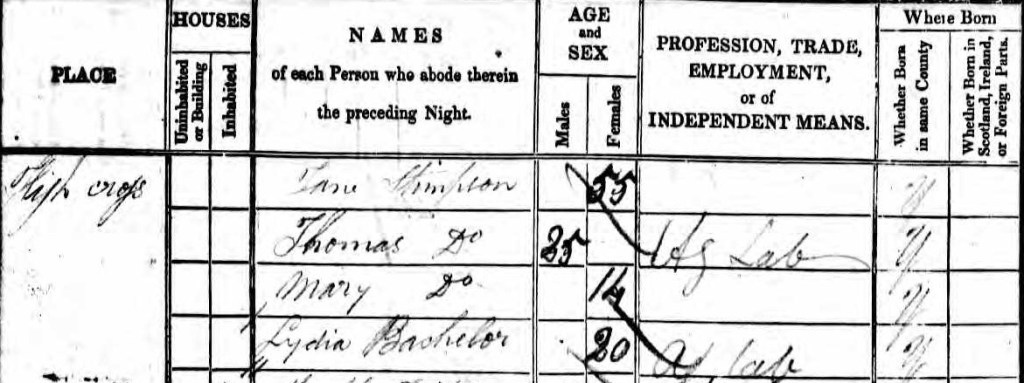 PLACE
HOUSES
Uninhabited or Building
Inhabited
NAMES
of each Person who abode therein
the preceding Night.
AGE
and
SEX
Males
Females
PROFESSION, TRADE,
EMPLOYMENT,
or of
INDEPENDENT MEANS.
Where Born
Whether Born in same County
Whether Born in Scotland, Ireland, or Foreign Parts.
High cross Jane Stimpson 55 y
Thomas Do 25 Ag Lab y
Mary Do 14 y
Lydia Bachelor 20 Ag Lab y